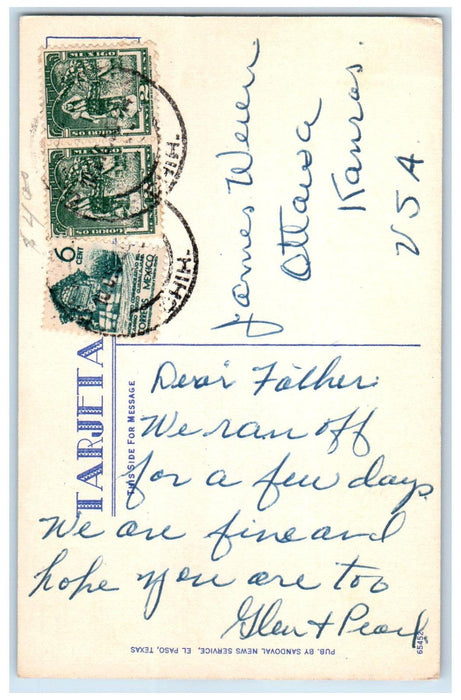 MEXICO
CORREOS
MEXICO
CORREOS
6
CENT
MEXICO
CHIH.
CHIH.
$4.00
TARJETA
THIS SIDE FOR MESSAGE
James Weren
Ottawa
Kansas.
USA.
Dear Father:
We ran off
for a few days.
We are fine and
hope you are too
Glen & Pearl
PUB. BY SANDOVAL NEWS SERVICE, EL PASO, TEXAS